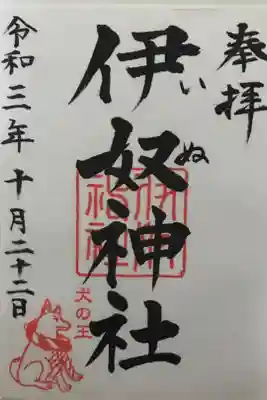 奉拝
伊奴神社
いぬ
伊奴神社
犬の王
令和三年十月二十二日